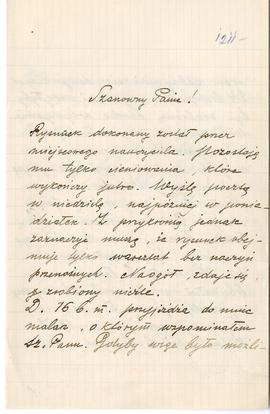 1211-
Szanowny Panie!
Rysunek dokonany został przez
miejscowego nauczyciela. Pozostają
mu tylko cieniowania, które
wykończy jutro. Wyślę pocztą
w niedzielę, najpóźniej w ponie-
działek. Z przykrością jednak
zaznaczyć muszę, że rysunek obej-
muje tylko warsztat bez naczyń
przenośnych. Naogół zdaje się
zrobiony nieźle.
D. 16 b. m. przyjeżdża do mnie
malarz, o którym wspominałem
Sz. Panu. Gdyby więc było możli-